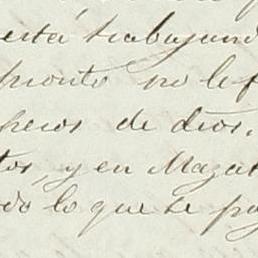 está trabajand
pronto no le f
pesos de dios.
tos, y en Mazat
do lo que se pa